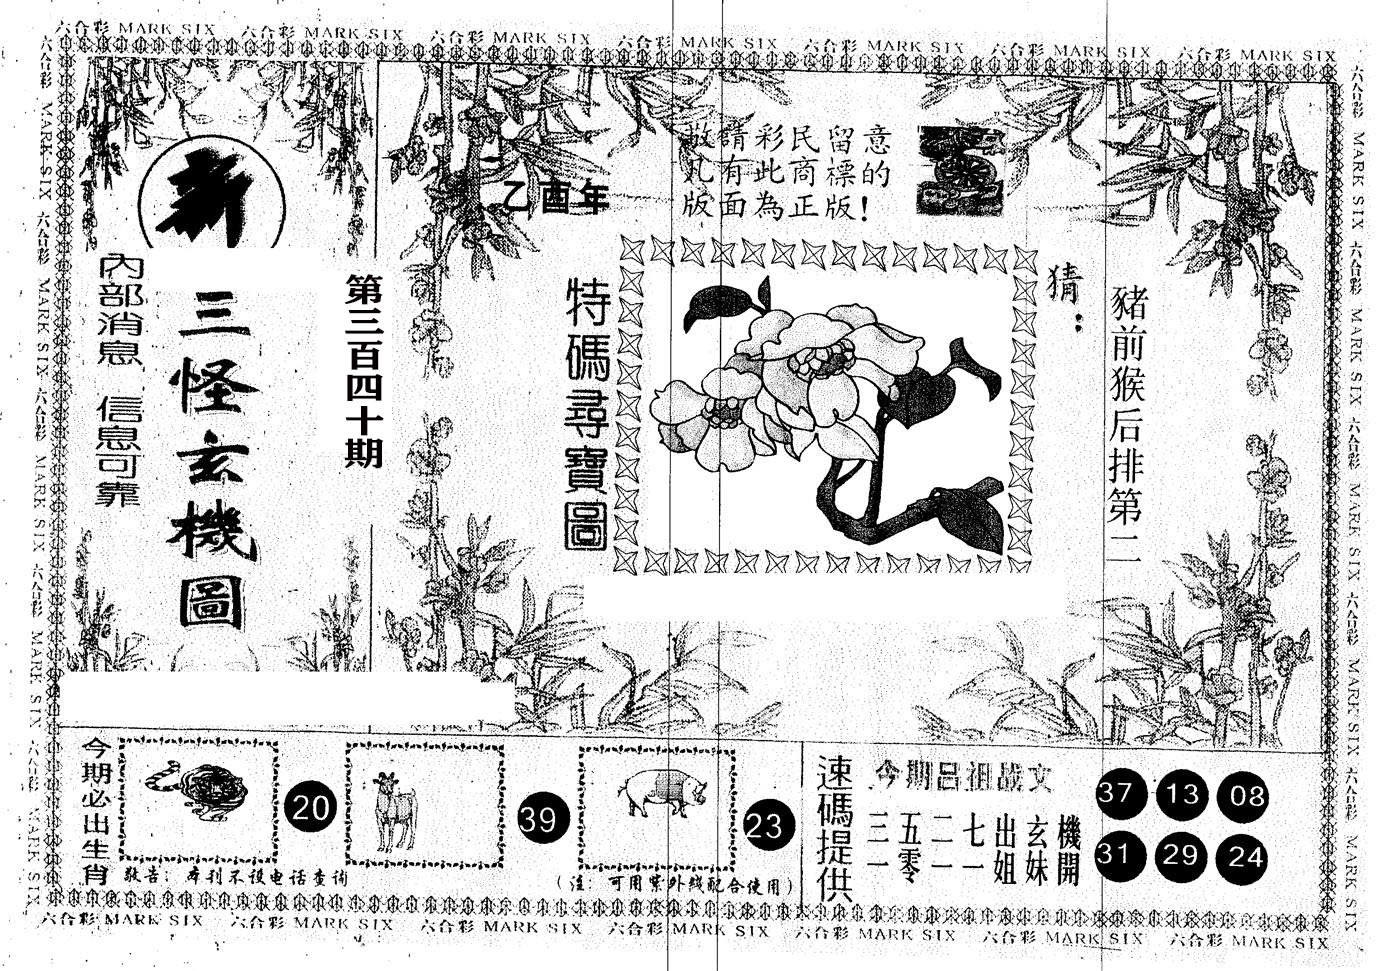 六合彩 MARK SIX 六合彩 MARK SIX 六合彩 MARK SIX 六合彩 MARK SIX 六合彩 MARK SIX 六合彩 MARK SIX 六合彩 MARK SIX
新
內部消息 信息可靠
三怪玄機圖
第三百四十期
乙酉年
敬請彩民留意
凡有此商標的
版面為正版!
特碼尋寶圖
猜:
豬前猴后排第二
今期必出生肖
20
39
23
敬告: 本刊不设电话查询
(注: 可用紫外线配合使用)
速碼提供
今期呂祖战文
三五二七出玄機
一零一一姐妹開
37 13 08
31 29 24
六合彩 MARK SIX 六合彩 MARK SIX 六合彩 MARK SIX 六合彩 MARK SIX 六合彩 MARK SIX 六合彩 MARK SIX 六合彩 MARK SIX